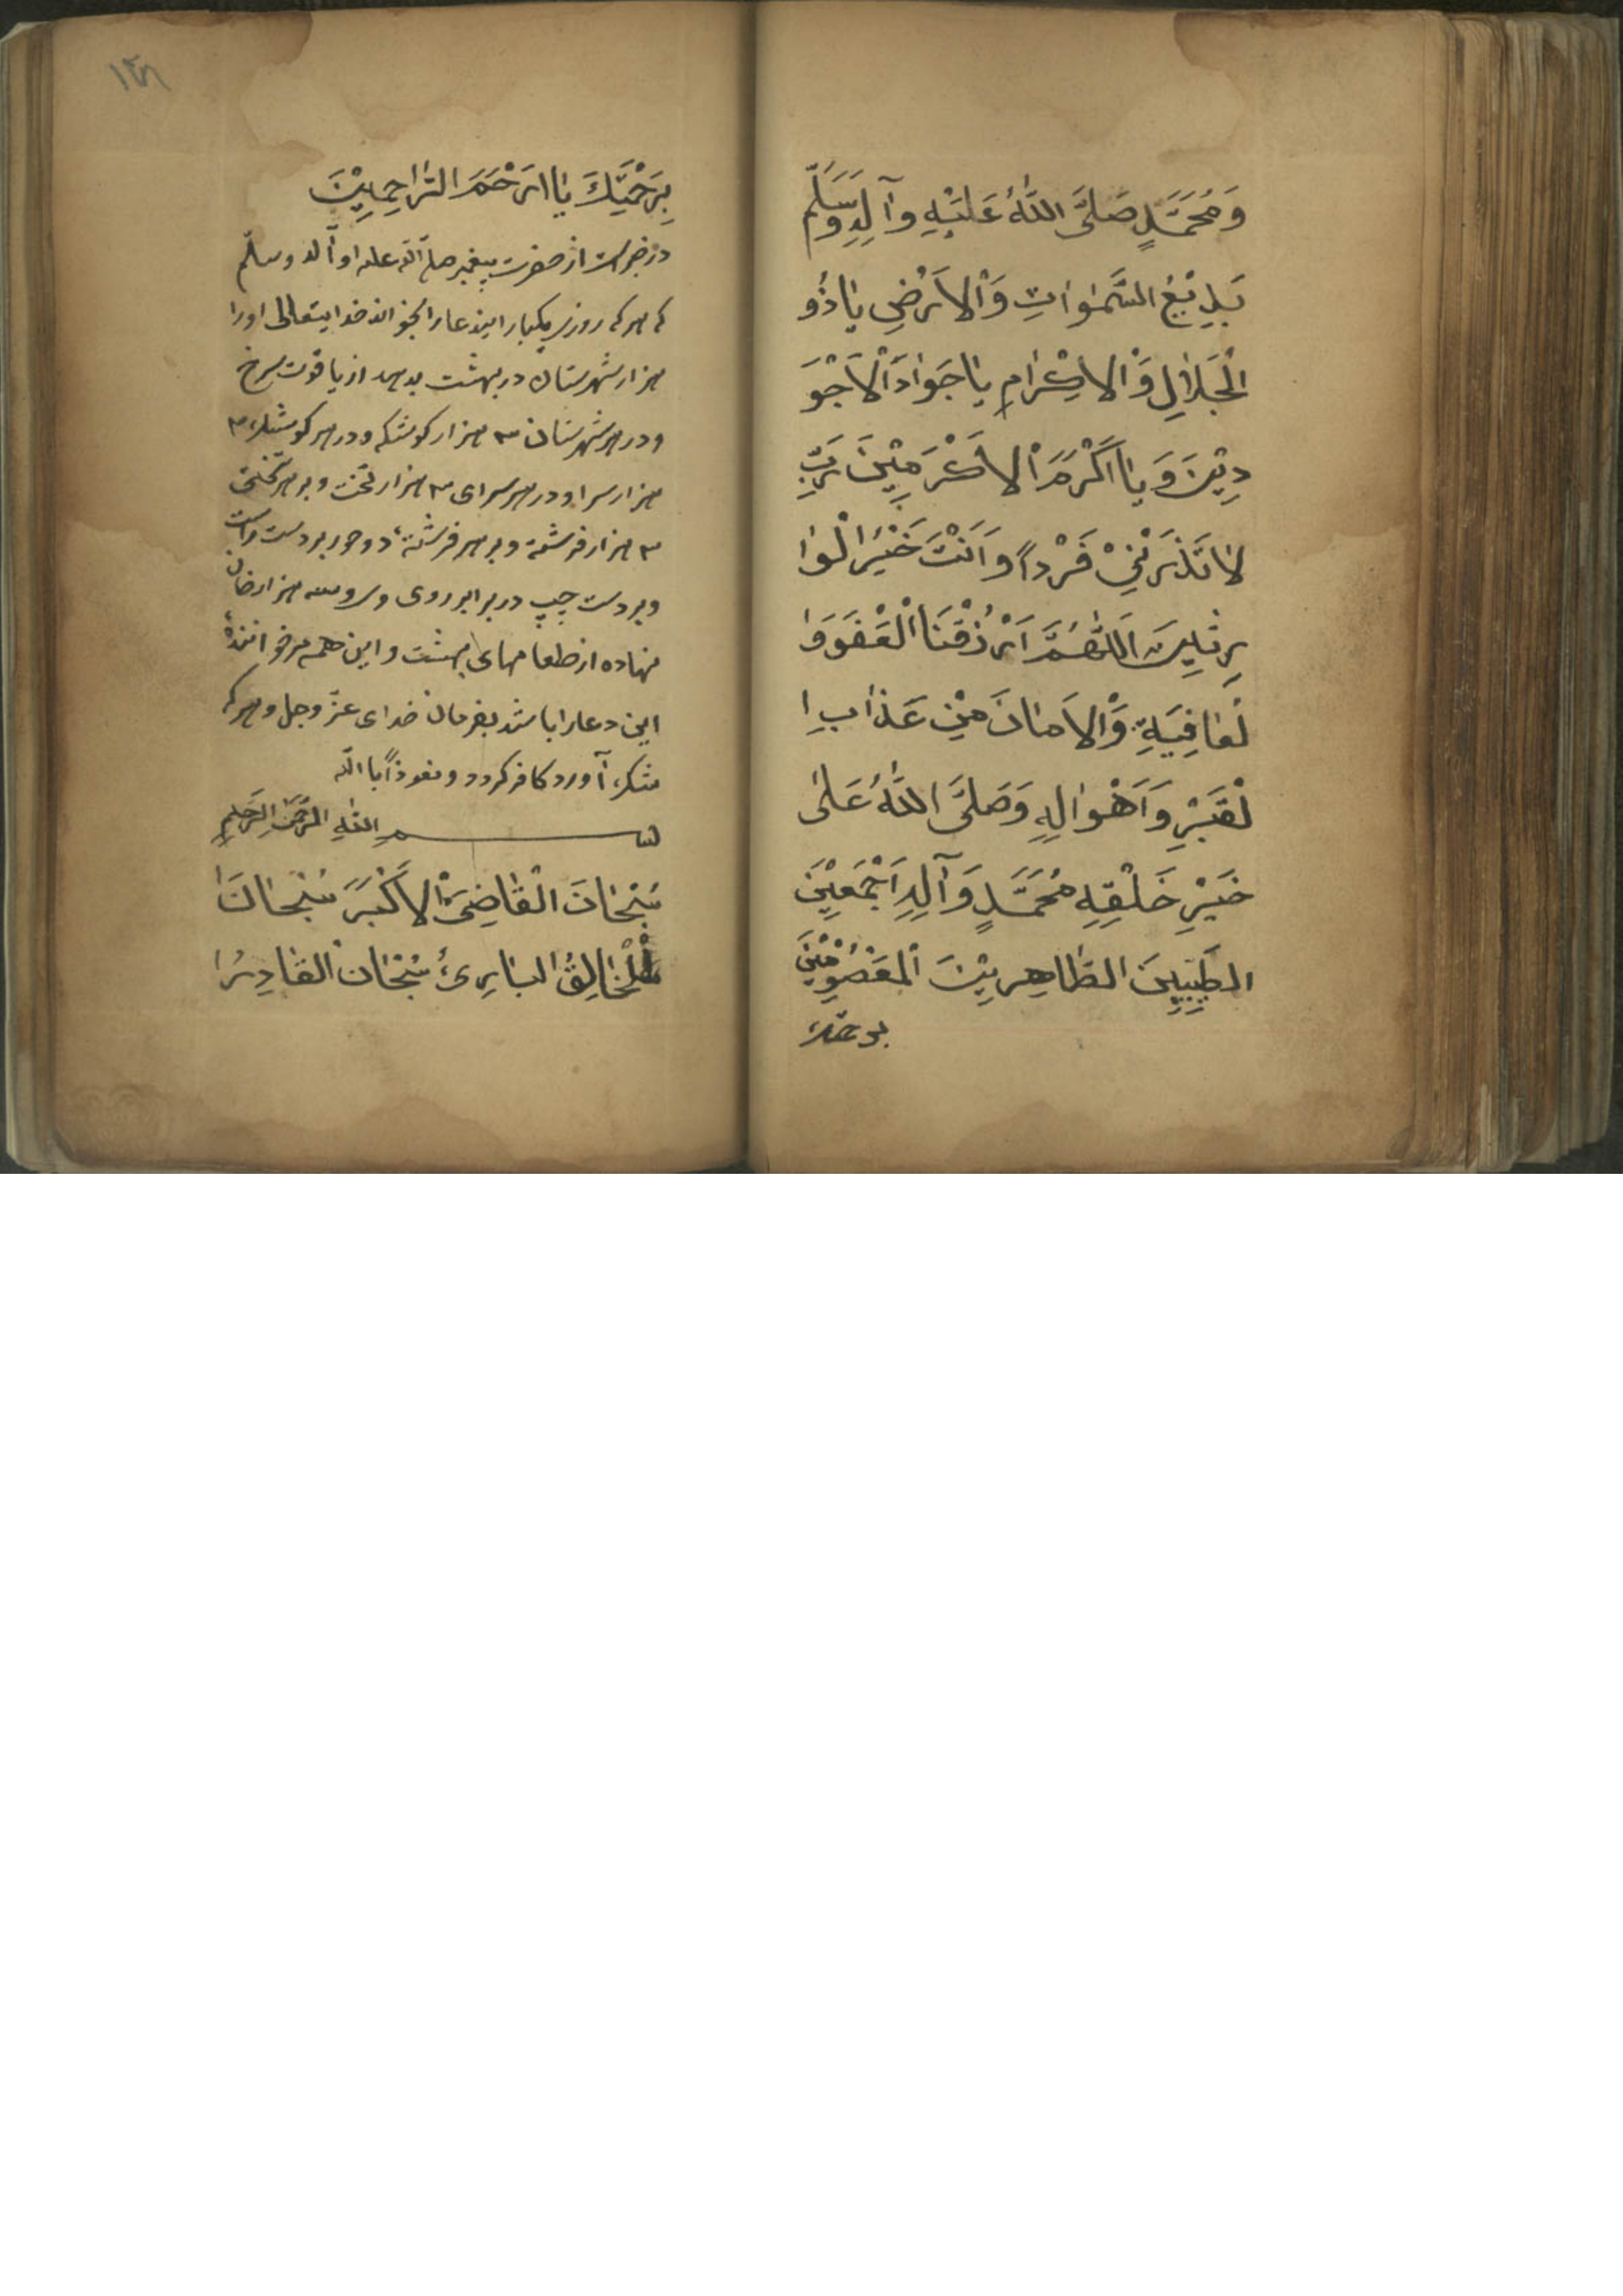 وَمُحَمَّدٍ صَلَّى اللّٰهُ عَلَيْهِ وَآلِهِ وَسَلَّمْ
بَدِيْعُ السَّمٰوٰاتِ وَالْاَرْضِ يٰا ذُو
الْجَلٰالِ وَالْاِكْرٰامِ يٰا جَوٰادَ الْاَجْوَ
دِيْنَ وَ يٰا اَكْرَمَ الْاَكْرَمِيْنَ رَبِّ
لٰا تَذَرْنِيْ فَرْداً وَ اَنْتَ خَيْرُ الْوٰا
رِثِيْنَ اَللّٰهُمَّ ارْزُقْنَا الْعَفْوَ وَا
لْعٰافِيَةِ وَالْاَمٰانَ مِنْ عَذٰابِ ا
لْقَبْرِ وَ اَهْوٰالِهِ وَ صَلَّى اللّٰهُ عَلٰى
خَيْرِ خَلْقِهِ مُحَمَّدٍ وَ آلِهِ اَجْمَعِيْنَ
الطَّيِّبِيْنَ الطّٰاهِرِيْنَ الْمَعْصُوْمِيْنَ
برحمتك
١٣٨
بِرَحْمَتِكَ يٰا اَرْحَمَ الرّٰاحِمِيْنَ
در خبرست از حضرت پيغمبر صلّى اللّه عليه و آله وسلّم
كه هر كه روزى يكبار ايندعا را بخواند خدايتعالى او را
هزار شهرستان در بهشت بدهد از ياقوت سرخ
و در هر شهرستان ٣ هزار كوشك و در هر كوشك ٣
هزار سرا و در هر سراى ٣ هزار تخت و بر هر تختى
٣ هزار فرشته و بر هر فرشته دو حور بر دست راست
و بر دست چپ در برابر روى وى و سه هزار خوان
نهاده از طعامهاى بهشت و اين همه مر خواننده
اين دعا را باشد بفرمان خداى عزّ وجل و هر كه
شك آورد كافر گردد و نعوذاً باللّه
بسم اللّٰهِ الرَّحْمٰنِ الرَّحيمِ
سُبْحٰانَ الْقٰاضِىَ الْاَكْبَرَ سُبْحٰانَ ا
لْخٰالِقُ الْبٰارِئُ سُبْحٰانَ الْقٰادِرُ ا